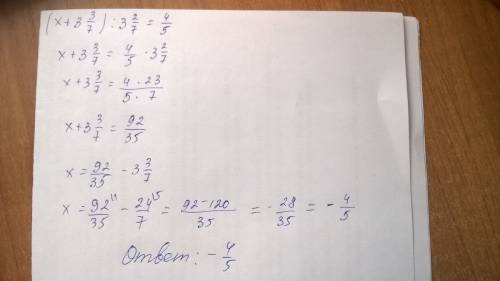 (x+3 3/7) : 3 2/7 = 4/5
x+3 3/7 = 4/5 · 3 2/7
x+3 3/7 = 4 · 23 / 5 · 7
x+3 3/7 = 92/35
x = 92/35 - 3 3/7
x = 92^{11}/35 - 24^{15}/7 = 92-120/35 = -28/35 = -4/5
Ответ: -4/5